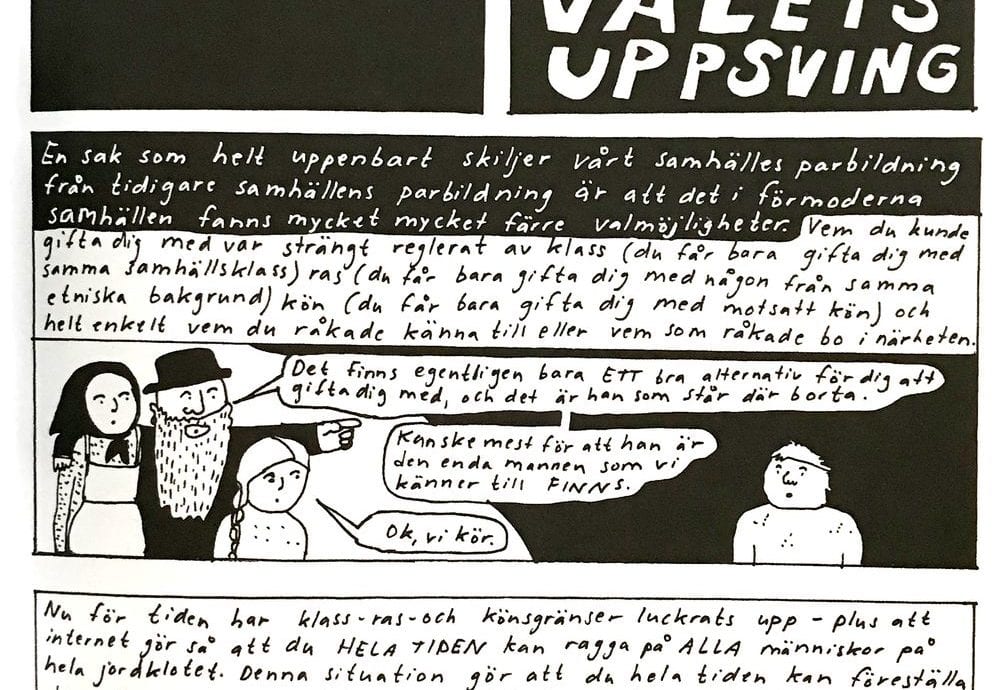 VALETS
UPPSVING
En sak som helt uppenbart skiljer vårt samhälles parbildning
från tidigare samhällens parbildning är att det i förmoderna
samhällen fanns mycket mycket färre valmöjligheter. Vem du kunde
gifta dig med var strängt reglerat av klass (du får bara gifta dig med
samma samhällsklass) ras (du får bara gifta dig med någon från samma
etniska bakgrund) kön (du får bara gifta dig med motsatt kön) och
helt enkelt vem du råkade känna till eller vem som råkade bo i närheten.
Det finns egentligen bara ETT bra alternativ för dig att
gifta dig med, och det är han som står där borta.
Kanske mest för att han är
den enda mannen som vi
känner till FINNS.
Ok, vi kör.
Nu för tiden har klass-ras-och könsgränser luckrats upp - plus att
internet gör så att du HELA TIDEN kan ragga på ALLA människor på
hela jordklotet. Denna situation gör att du hela tiden kan föreställa